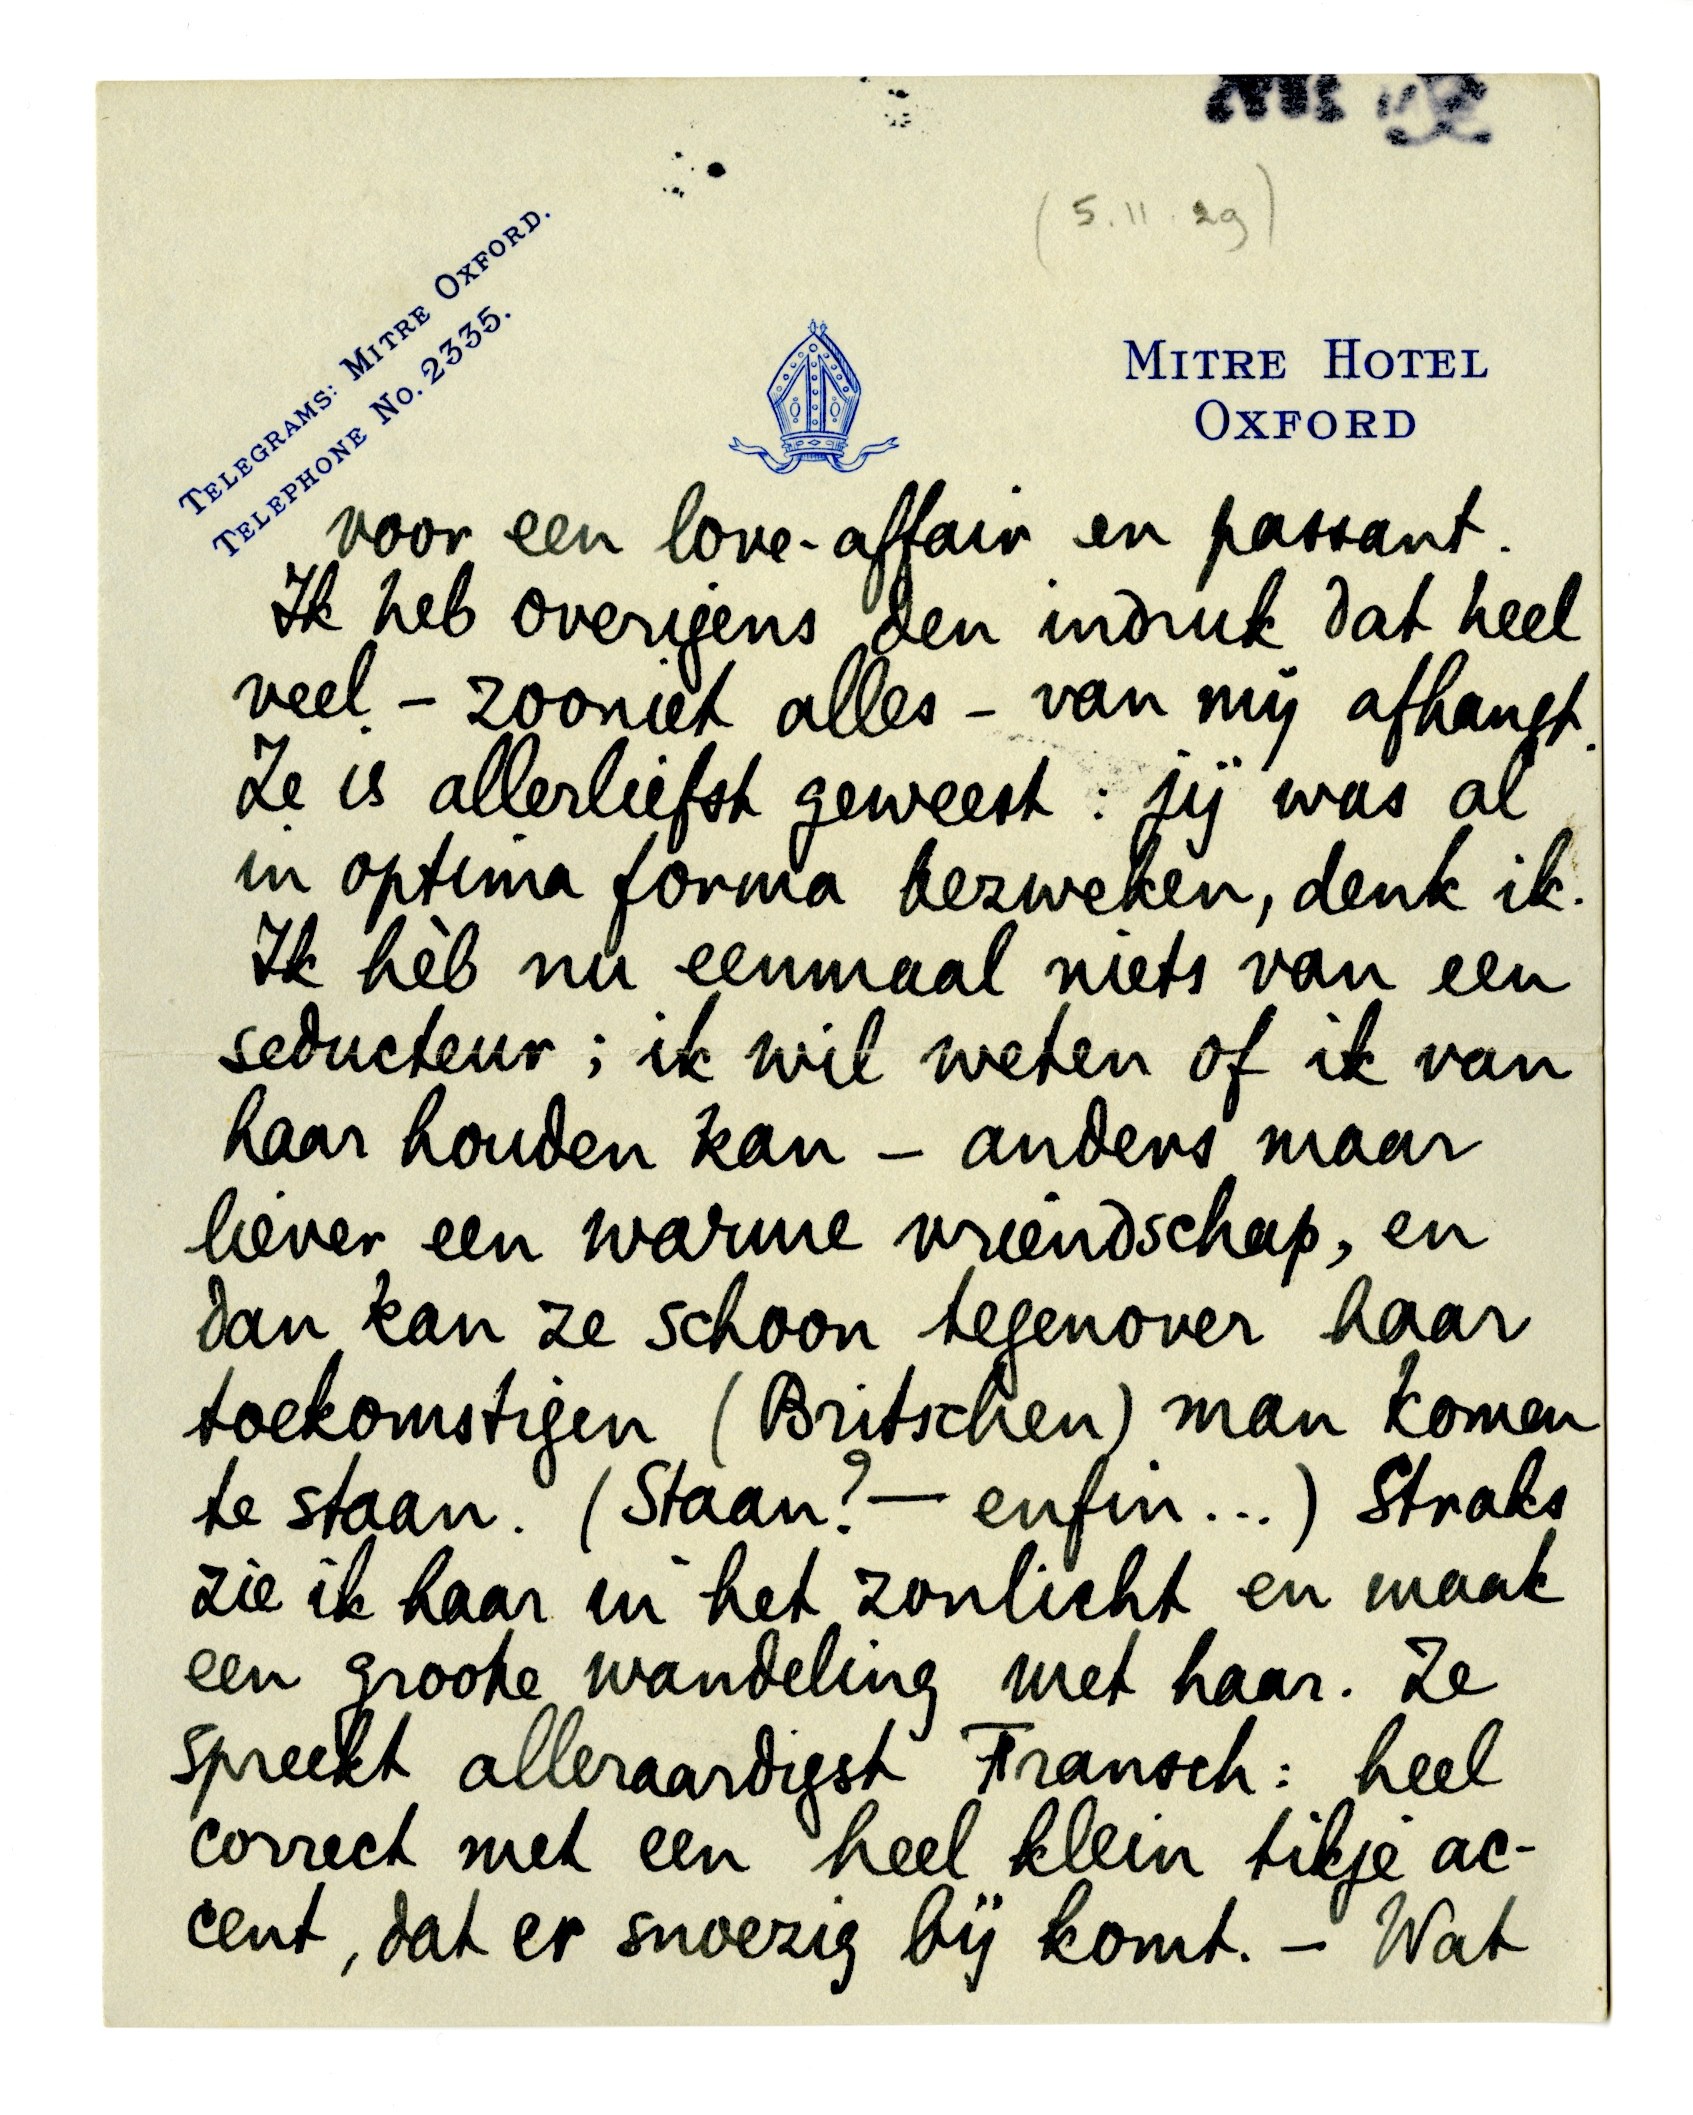 (5.11.29)
TELEGRAMS: MITRE OXFORD.
TELEPHONE No. 2335.
MITRE HOTEL
OXFORD
voor een love-affair en passant.
Ik heb overigens den indruk dat heel
veel – zooniet alles – van mij afhangt.
Ze is allerliefst geweest : jij was al
in optima forma bezweken, denk ik.
Ik hèb nu eenmaal niets van een
seducteur ; ik wil weten of ik van
haar houden kan – anders maar
liever een warme vriendschap, en
dan kan ze schoon tegenover haar
toekomstigen (Britschen) man komen
te staan. (Staan? — enfin...) Straks
zie ik haar in het zonlicht en maak
een groote wandeling met haar. Ze
spreekt alleraardigst Fransch : heel
correct met een heel klein tikje ac-
cent, dat er snoezig bij komt. – Wat